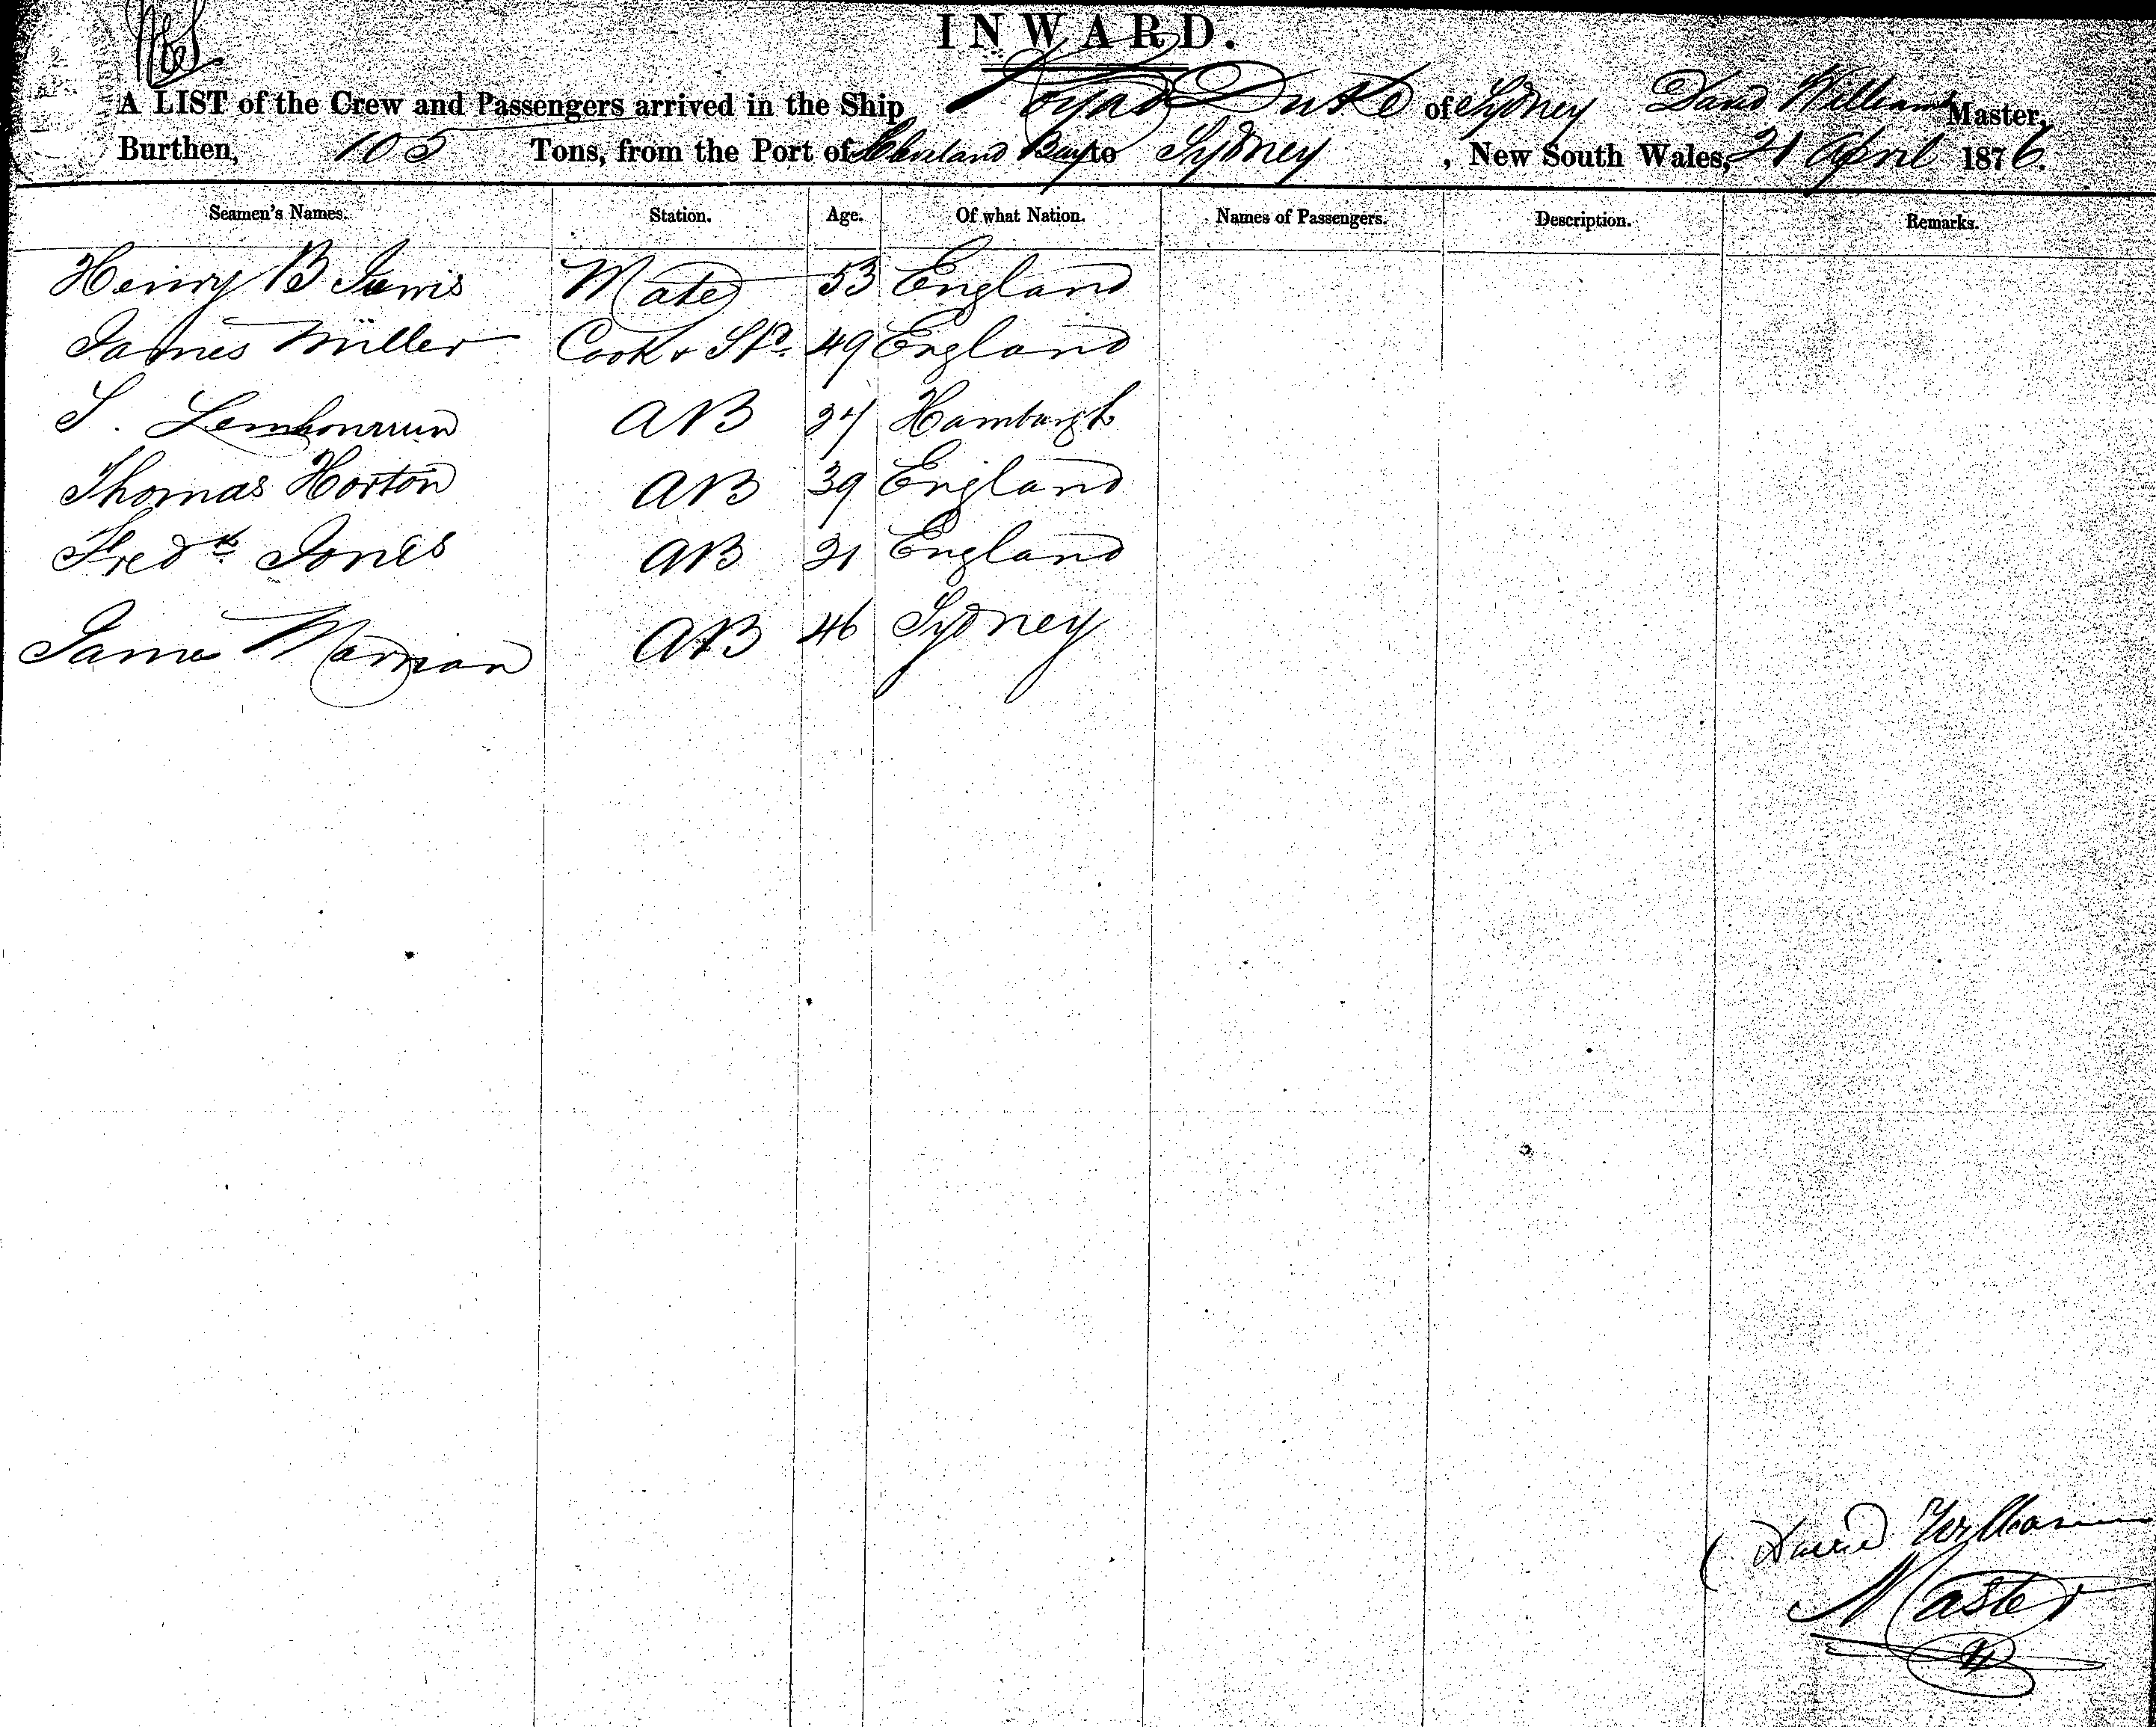 INWARD.
A LIST of the Crew and Passengers arrived in the Ship Royal Duke of Sydney David Williams Master,
Burthen, 105 Tons, from the Port of Cleveland Bay to Sydney, New South Wales, 21 April 1876.
Seamen's Names. Station. Age. Of what Nation. Names of Passengers. Description. Remarks.
Henry B Mate 53 England
James Miller Cook & Std. 49 England
S. AB Hamburgh
Thomas Horton AB 39 England
Fredk Jones AB England
James AB 46 Sydney
David Williams
Master